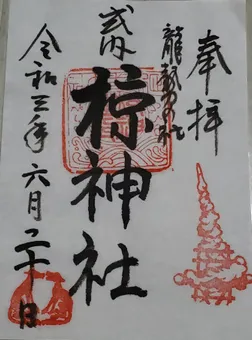 奉拝
龍勢の社
式内
椋神社
令和三年六月二十日